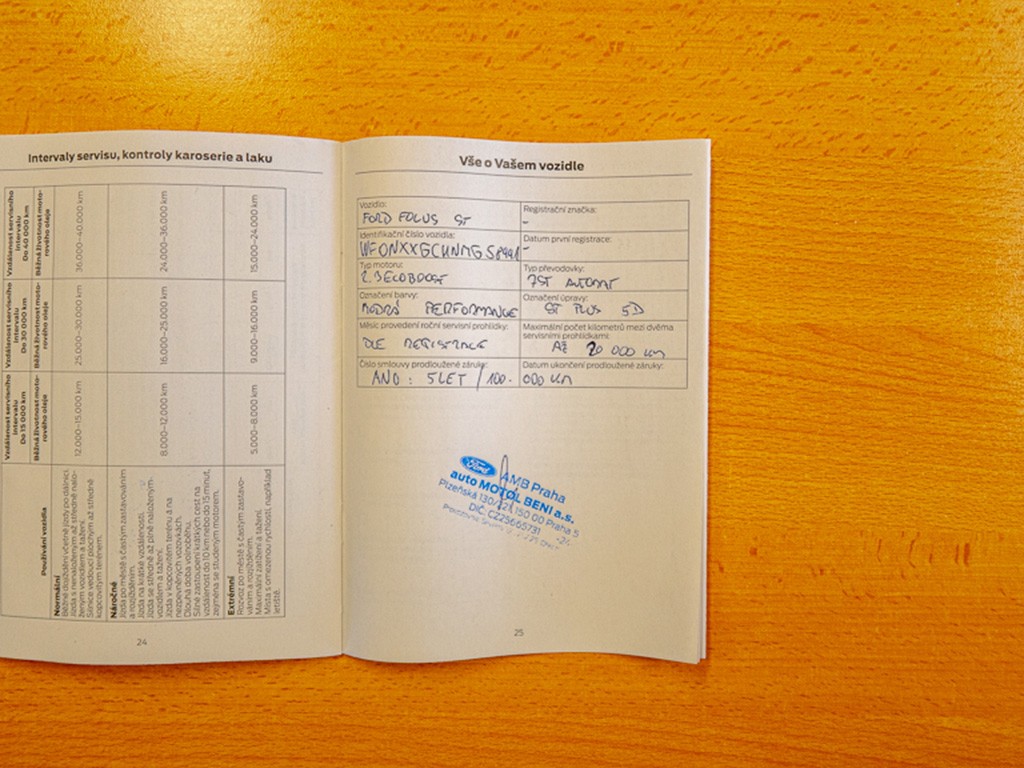 Intervaly servisu, kontroly karoserie a laku
Používání vozidla
Vzdálenost servisního intervalu Do 15 000 km
Vzdálenost servisního intervalu Do 30 000 km
Vzdálenost servisního intervalu Do 40 000 km
Běžná životnost motorového oleje
Běžná životnost motorového oleje
Běžná životnost motorového oleje
Normální
Běžné dojíždění včetně jízdy po dálnici.
Jízda s nenaloženým až středně nalo-
ženým vozidlem a tažení.
Silnice vedoucí plochým až středně
kopcovitým terénem.
12.000–15.000 km
25.000–30.000 km
36.000–40.000 km
Náročné
Jízda po městě s častým zastavováním
a rozjížděním.
Jízda na krátké vzdálenosti.
Jízda se středně až plně naloženým
vozidlem a tažení.
Jízda v kopcovitém terénu a na
nezpevněných vozovkách.
Dlouhá doba volnoběhu.
Silné zastoupení krátkých cest na
vzdálenost do 10 km nebo do 15 minut,
zejména se studeným motorem.
8.000–12.000 km
16.000–25.000 km
24.000–36.000 km
Extrémní
Rozvoz po městě s častým zastavo-
váním a rozjížděním.
Maximální zatížení a tažení.
Místa s omezenou rychlostí, například
letiště.
5.000–8.000 km
9.000–16.000 km
15.000–24.000 km
24
Vše o Vašem vozidle
Vozidlo:
FORD FOCUS ST
Registrační značka:
-
Identifikační číslo vozidla:
WF0NXXGCHNMG58441
Datum první registrace:
-
Typ motoru:
2.3 ECOBOOST
Typ převodovky:
7ST AUTOMAT
Označení barvy:
MODRÁ PERFORMANCE
Označení úpravy:
ST PLUS 5D
Měsíc provedení roční servisní prohlídky:
DLE REGISTRACE
Maximální počet kilometrů mezi dvěma
servisními prohlídkami:
AŽ 20 000 km
Číslo smlouvy prodloužené záruky:
ANO: 5 LET / 100.
Datum ukončení prodloužené záruky:
000 km
Ford
AMB Praha
auto MOTOL BENI a.s.
Plzeňská 130/221, 150 00 Praha 5
DIČ: CZ25665731
-24-
25